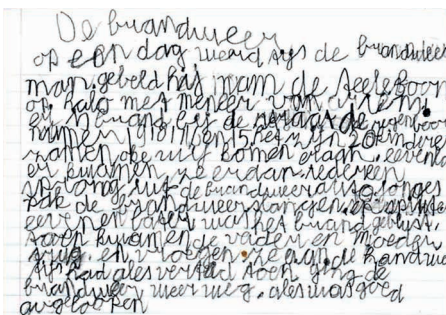 De brandweer
op een dag werd sijs de brandweer
man gebeld hij nam de teeleboon
op halo met meneer van
er is brand bij de regenboog
numer 19 18 17 16 en 15 het zijn 20 kinderen
komen eraan, eeven
er kwamen ze er dan iedereen
sprong uit de brandweerauto
pak de brandweerslangen
eeven later was het brand geblust.
toen kwamen de vader en moeder
trug en vroegen ze aan de brandweer
sijs had ales verteld toen ging de
brandweer weer weg. ales was goed
avgeloopen